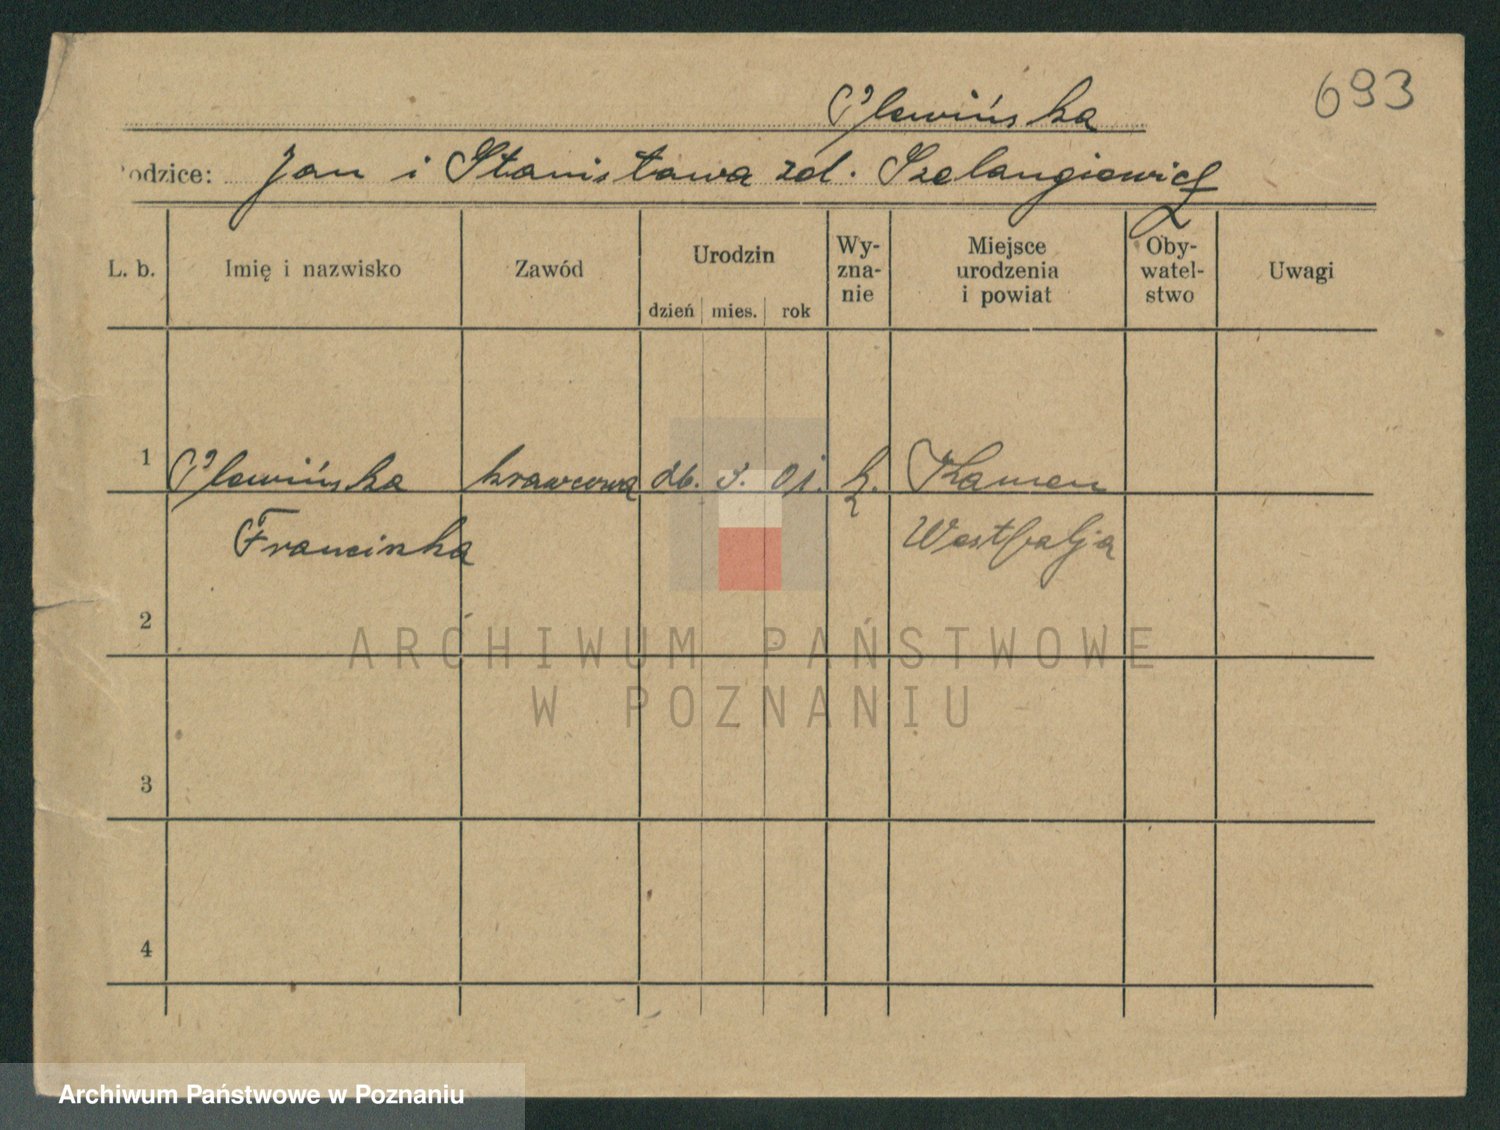 693
Plewińska
Rodzice: Jan i Stanisława zd. Szelangiewicz
L. b. Imię i nazwisko Zawód Urodzin dzień mies. rok Wy-zna-nie Miejsce urodzenia i powiat Oby-watel-stwo Uwagi
1 Plewińska krawcowa 01. k. Kamen
Franciszka Westfalja
2
3
4
ARCHIWUM PAŃSTWOWE
W POZNANIU
Archiwum Państwowe w Poznaniu